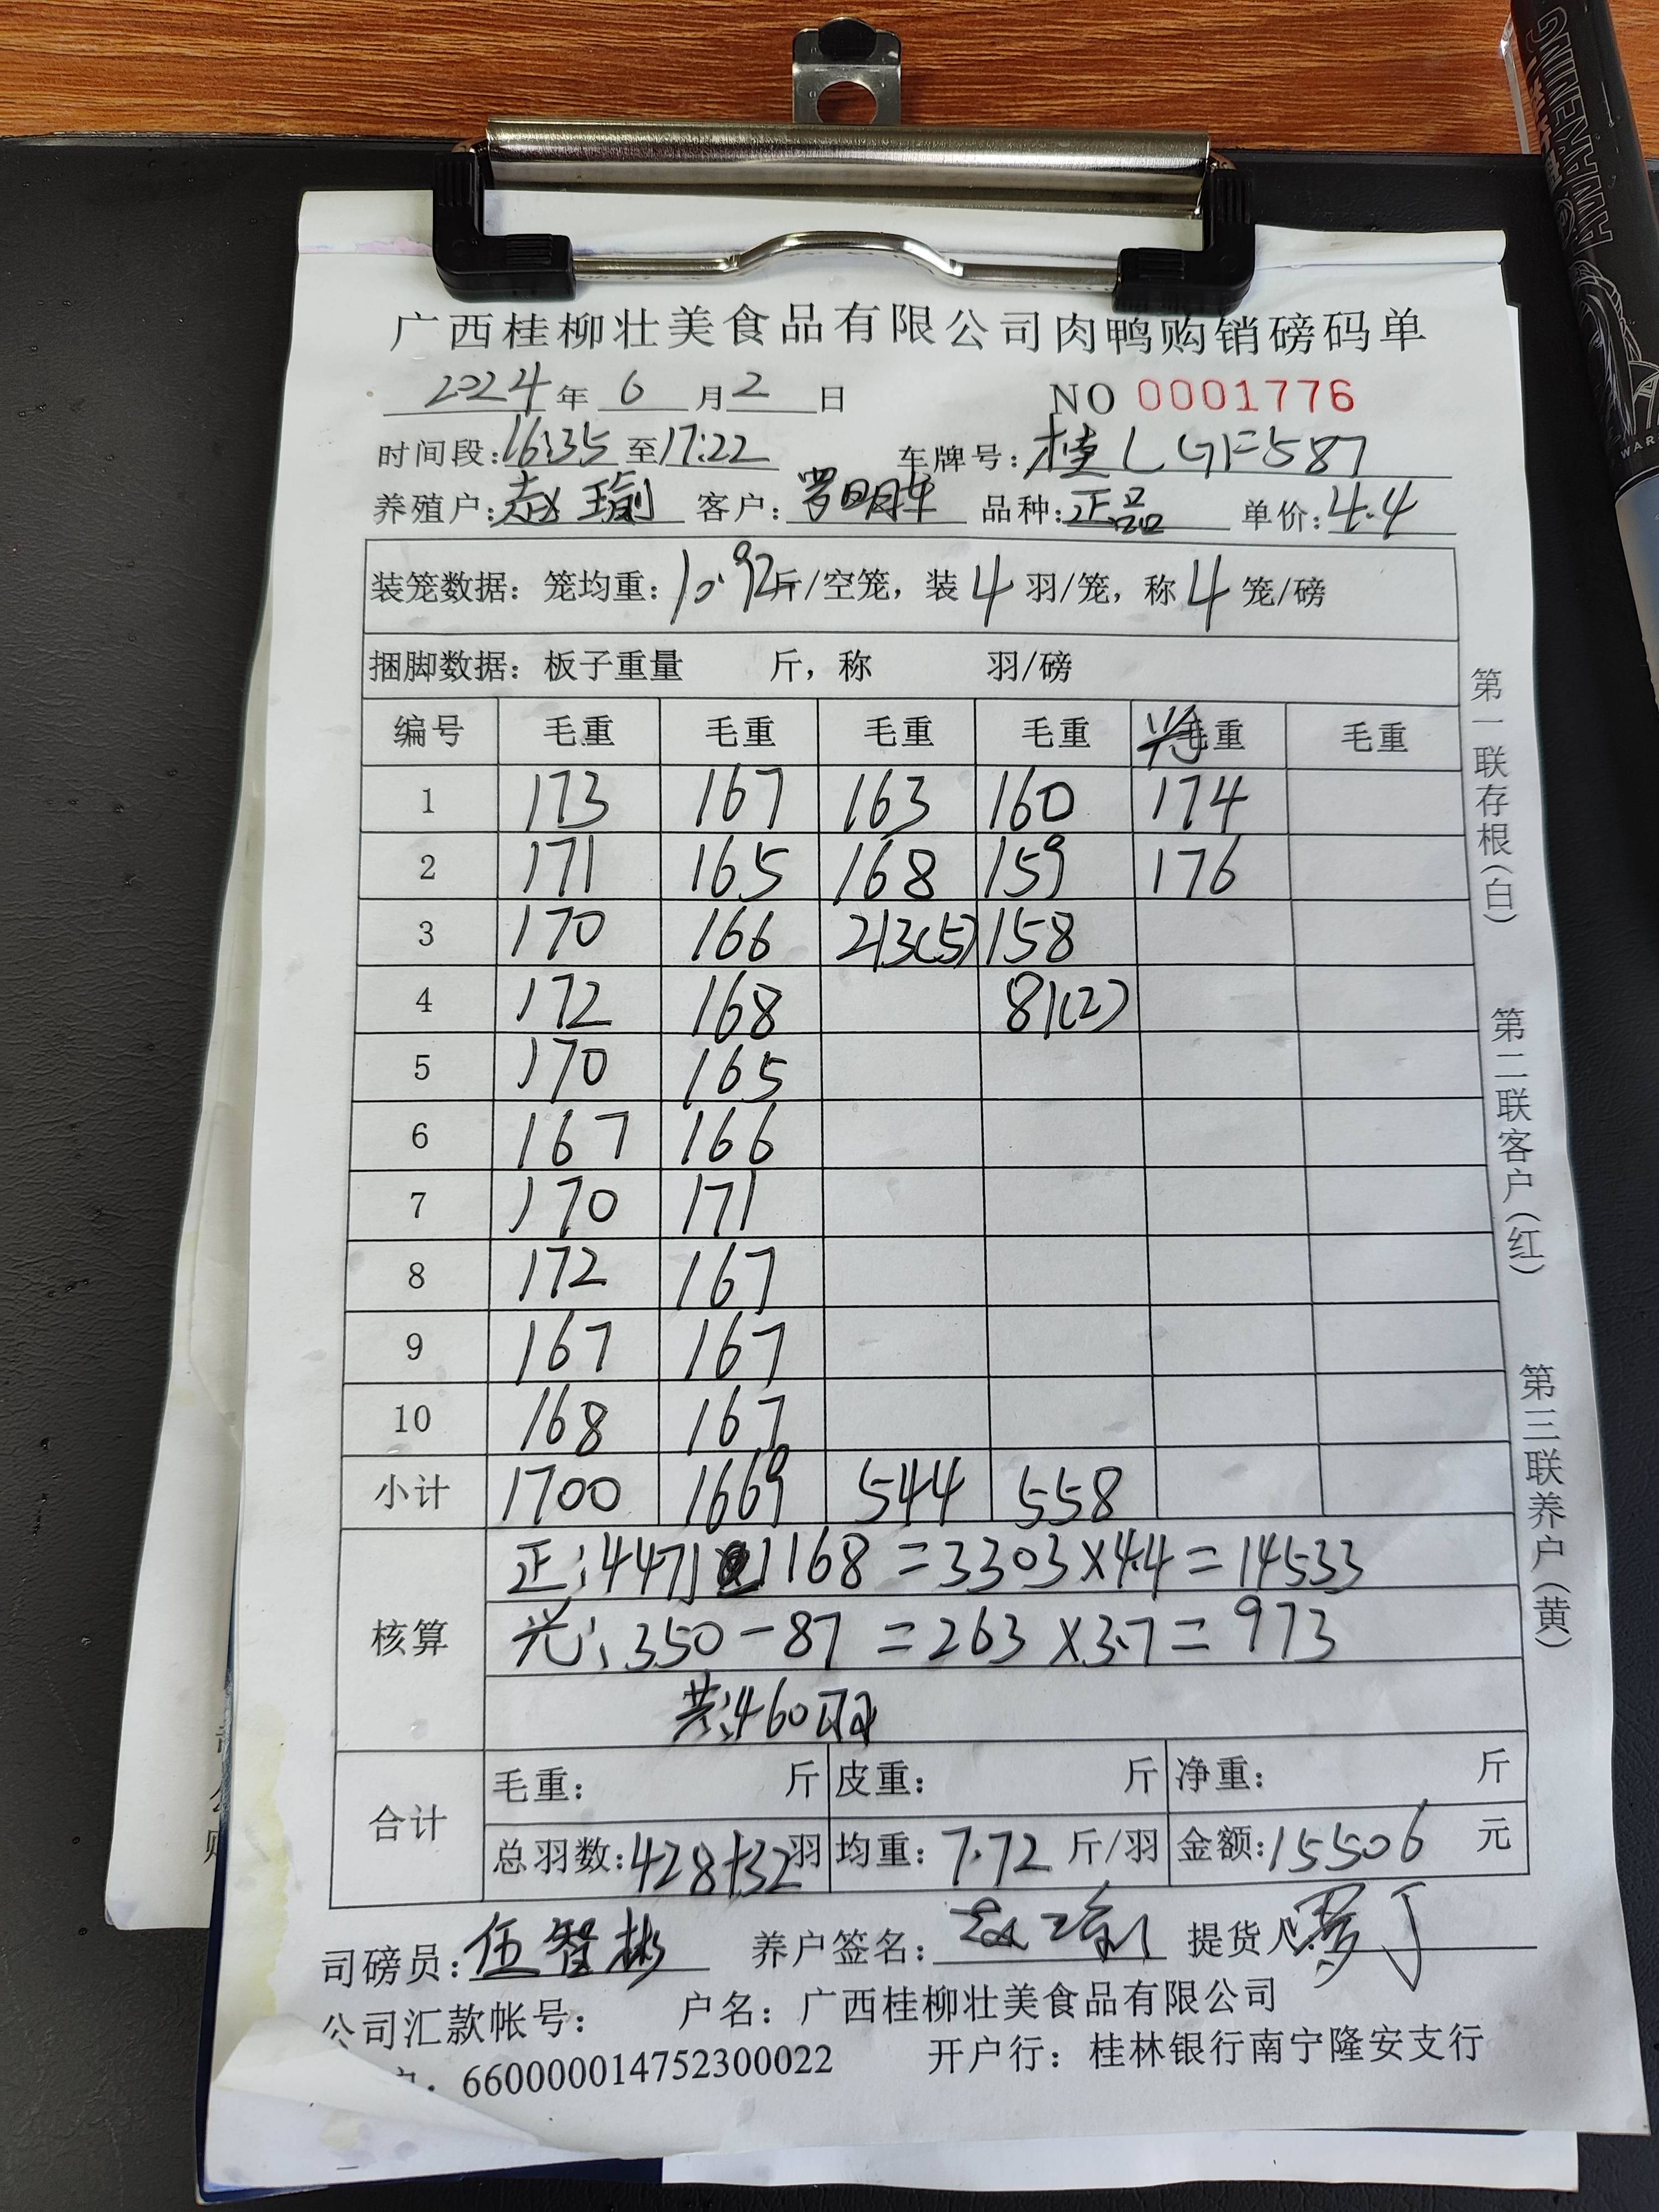 广西桂柳壮美食品有限公司肉鸭购销磅码单
2024年 6 月 2 日 NO 0001776
时间段:16:35至17:22 车牌号:桂L GF587
养殖户:赵瑜 客户:罗明车 品种:正品 单价:4.4
装笼数据：笼均重:10.92斤/空笼，装 4 羽/笼，称 4 笼/磅
捆脚数据：板子重量 斤，称 羽/磅
编号 毛重 毛重 毛重 毛重 毛重 毛重
1 173 167 163 160 174
2 171 165 168 159 176
3 170 166 213(5) 158
4 172 168 81(2)
5 170 165
6 167 166
7 170 171
8 172 167
9 167 167
10 168 167
小计 1700 1669 544 558
核算
正:4471 1168=3303×4.4=14533
光:350-87=263×3.7=973
共:460羽
合计
毛重： 斤 皮重： 斤 净重： 斤
总羽数:428+32羽 均重：7.72 斤/羽 金额:15506 元
司磅员:伍智彬 养户签名:赵瑜 提货人
公司汇款帐号： 户名：广西桂柳壮美食品有限公司
660000014752300022 开户行：桂林银行南宁隆安支行
第一联存根(白)
第二联客户(红)
第三联养户(黄)
AWAKENING
WAR